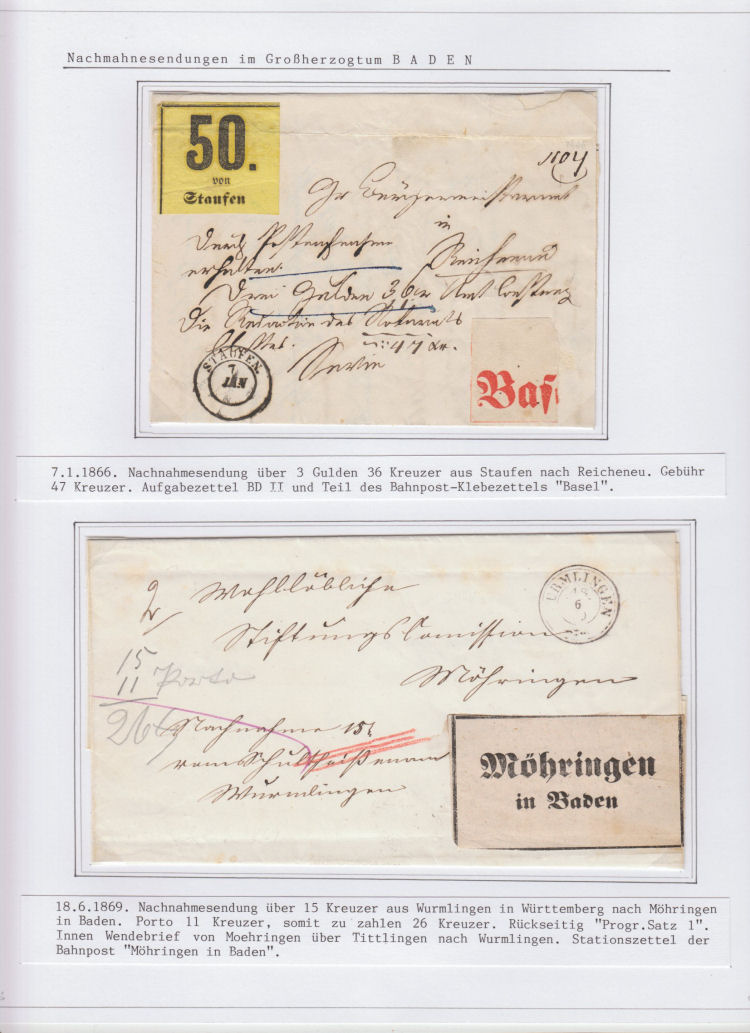 Nachmahnesendungen im Großherzogtum B A D E N
50.
von
Staufen
1104
in
Durch
erhalten.
Drei Gulden 36 Amt
Die des Notariats
47 Kr.
STAUFEN.
7
JAN
Bas
7.1.1866. Nachnahmesendung über 3 Gulden 36 Kreuzer aus Staufen nach Reicheneu. Gebühr
47 Kreuzer. Aufgabezettel BD II und Teil des Bahnpost-Klebezettels "Basel".
Wohllöbliche
Stiftungs Comission
Möhringen
URMLINGEN
18
6
15
11 Porto
26
Nachnahme 15
vom Schultheißenamt
Wurmlingen
Möhringen
in Baden
18.6.1869. Nachnahmesendung über 15 Kreuzer aus Wurmlingen in Württemberg nach Möhringen
in Baden. Porto 11 Kreuzer, somit zu zahlen 26 Kreuzer. Rückseitig "Progr.Satz 1".
Innen Wendebrief von Moehringen über Tittlingen nach Wurmlingen. Stationszettel der
Bahnpost "Möhringen in Baden".